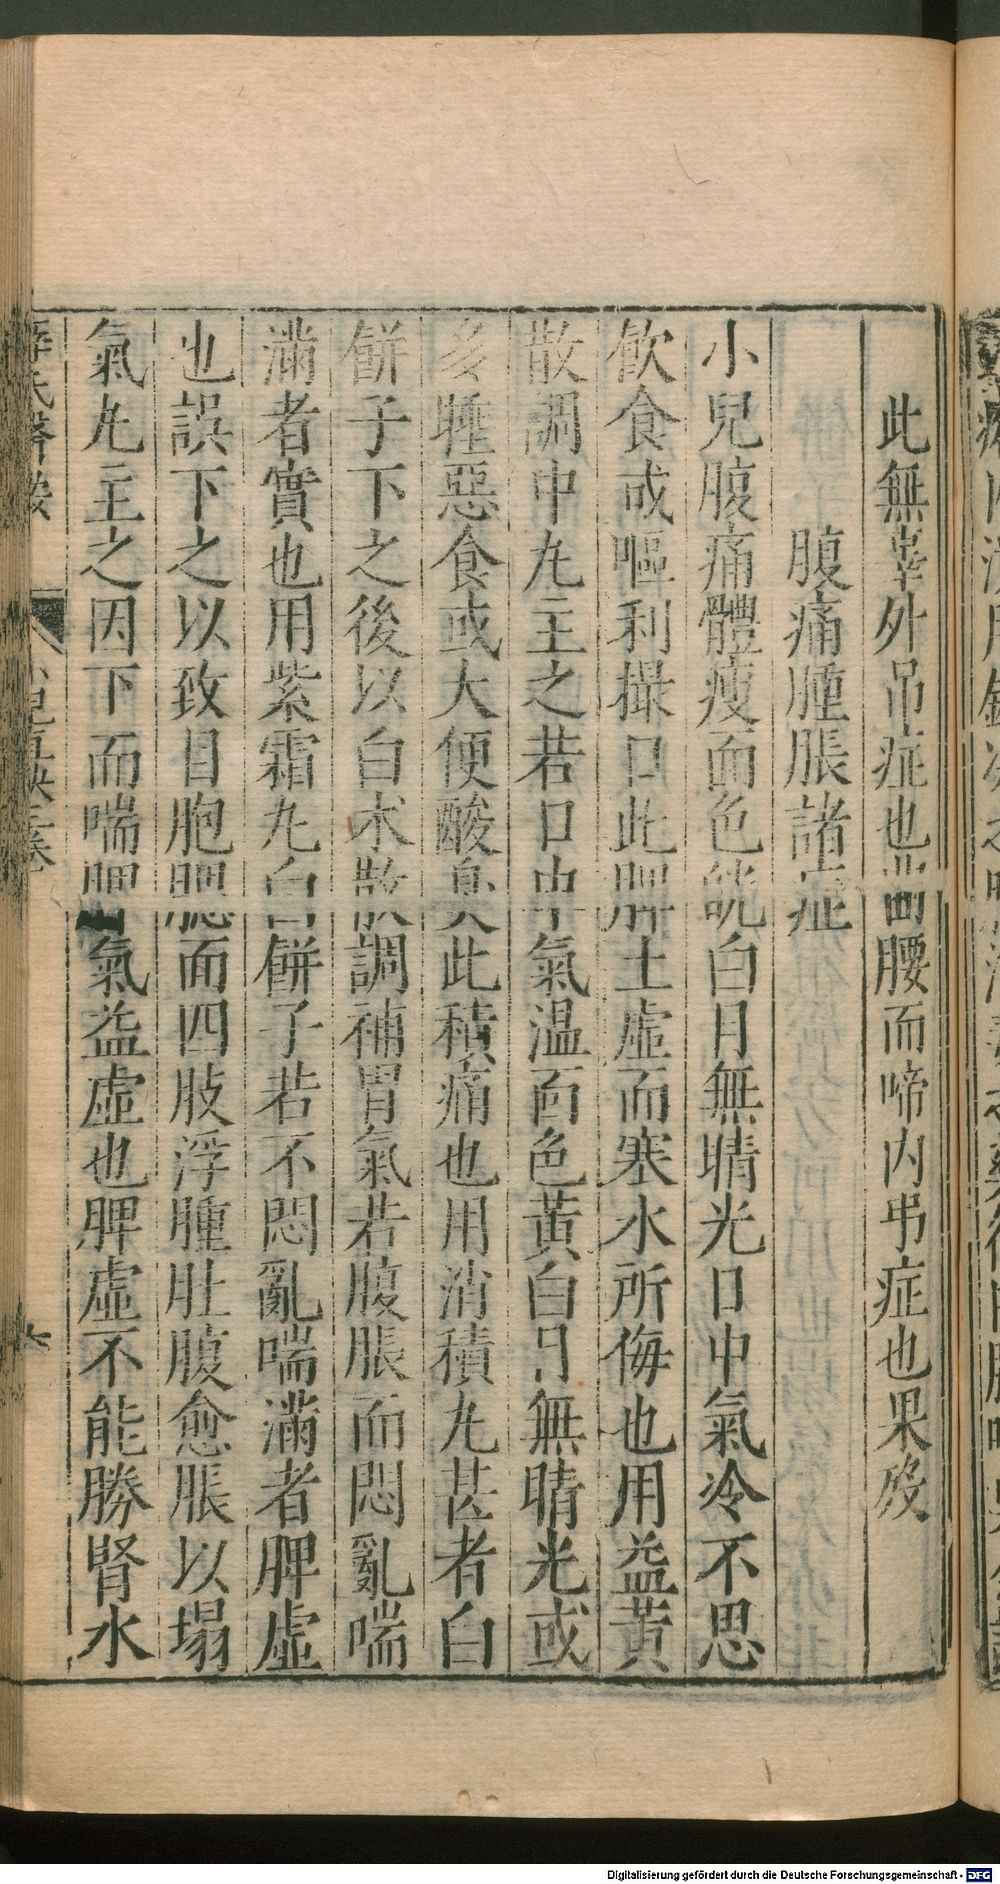 此無辜外吊症也曲腰而啼内弔症也果歿
腹痛腫脹諸症
小兒腹痛體瘦面色㿠白目無睛光口中氣冷不思
飲食或嘔利撮口此脾土虛而寒水所侮也用益黃
散調中丸主之若口中氣温面色黃白目無睛光或
多睡惡食或大便酸臭此積痛也用消積丸甚者白
餅子下之後以白朮散調補胃氣若腹脹而悶亂喘
滿者實也用紫霜丸白餅子若不悶亂喘滿者脾虛
也誤下之以致目胞腮面四肢浮腫肚腹愈脹以塌
氣丸主之因下而喘胃氣益虛也脾虛不能勝腎水
Digitalisierung gefördert durch die Deutsche Forschungsgemeinschaft - DFG